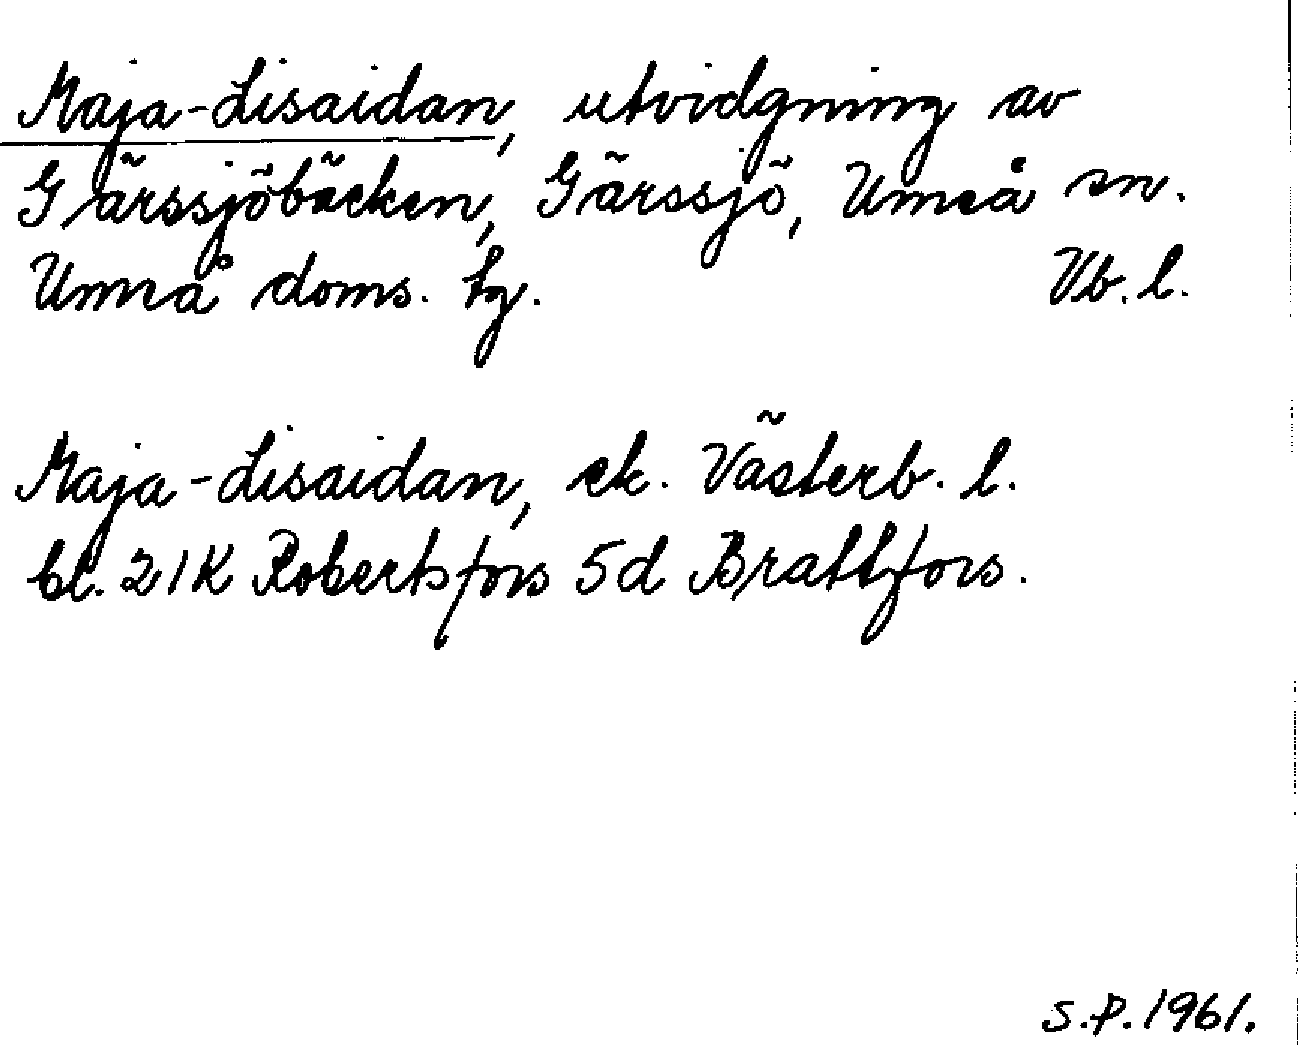 Maja-Lisaidan, utvidgning av
Gärssjöbäcken, Gärssjö, Umeå sn.
Umeå doms. tg. Vb. l.
Maja-Lisaidan, ek. Västerb. l.
bl. 21K Robertsfors 5d Brattfors.
S.P. 1961.